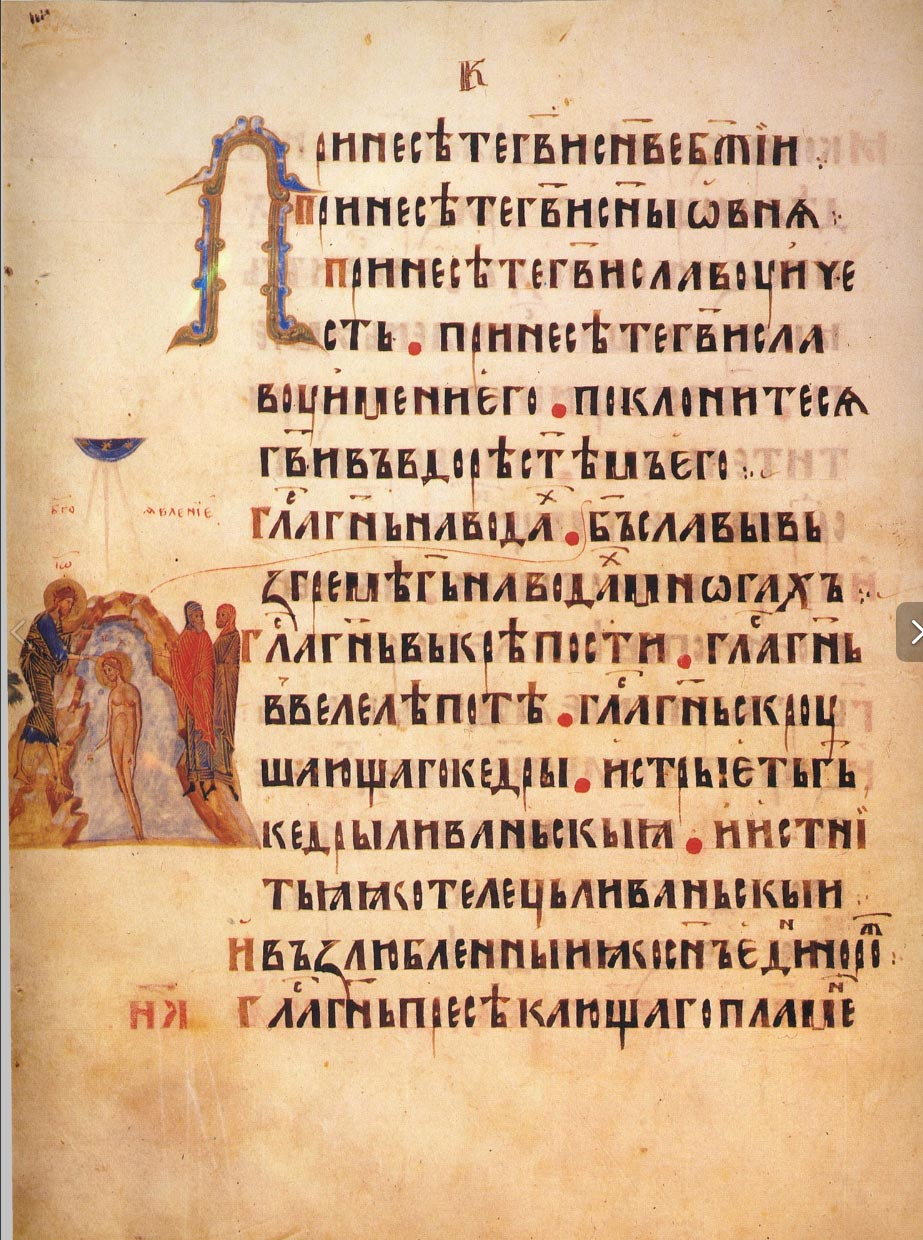 К
Принесѣтегв҃исн҃вебж҃ӏи
принесѣтегв҃исн҃ыѡвнѧ
принесѣтегв҃иславоцичѥ
сть · принесѣтегв҃исла
воцимениего · поклонитесѧ
гв҃ивъвдорѣст҃ѣмъего
бг҃оꙗвленїе
Глⷭ҇агн҃ьнаводаⷯ · бъ҃славывь
їѡ
ꙁгремѣгь҃наводаⷯмнѡгахъ
Глⷭ҇агн҃ьвькрѣпости · глⷭ҇агн҃ь
ввелелѣпотѣ · глⷭ҇агн҃ьскроу
шающагокедры · истрыетьгь҃
кедрыливаньскыꙗ · иистнї
тьꙗꙗкотелецьливаньскыи
Ивъꙁлюбленныиꙗкосн҃ъедⷩиноро
н҃ꙗ
Глⷭ҇агн҃ьпресѣкающагопламⷩе